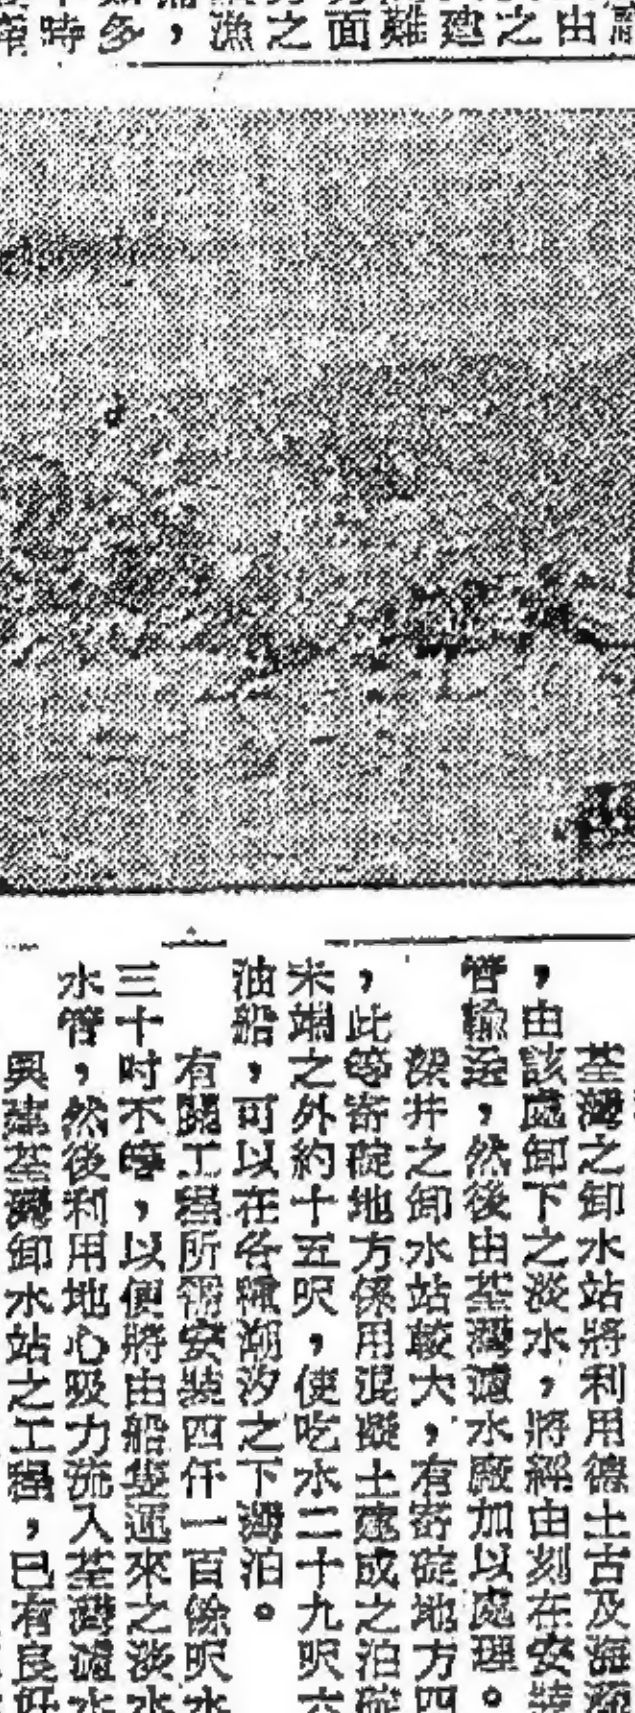 由
之
建
難
面
之
漁
，
多
時
荃灣之卸水站將利用德士古及海
，由該處卸下之淡水，將經由刻在安裝
管輸运，然後由荃灣濾水廠加以處理。
深井之卸水站較大，有寄碇地方四
，此等寄碇地方係用混凝土建成之泊碇
末端之外約十五呎，使吃水二十九呎六
油船，可以在各種潮汐之下灣泊。
有關工程所需安裝四仟一百餘呎水
三十吋不等，以便將由船隻运來之淡水
水管，然後利用地心吸力流入荃灣濾水
興建荃灣卸水站之工程，已有良好